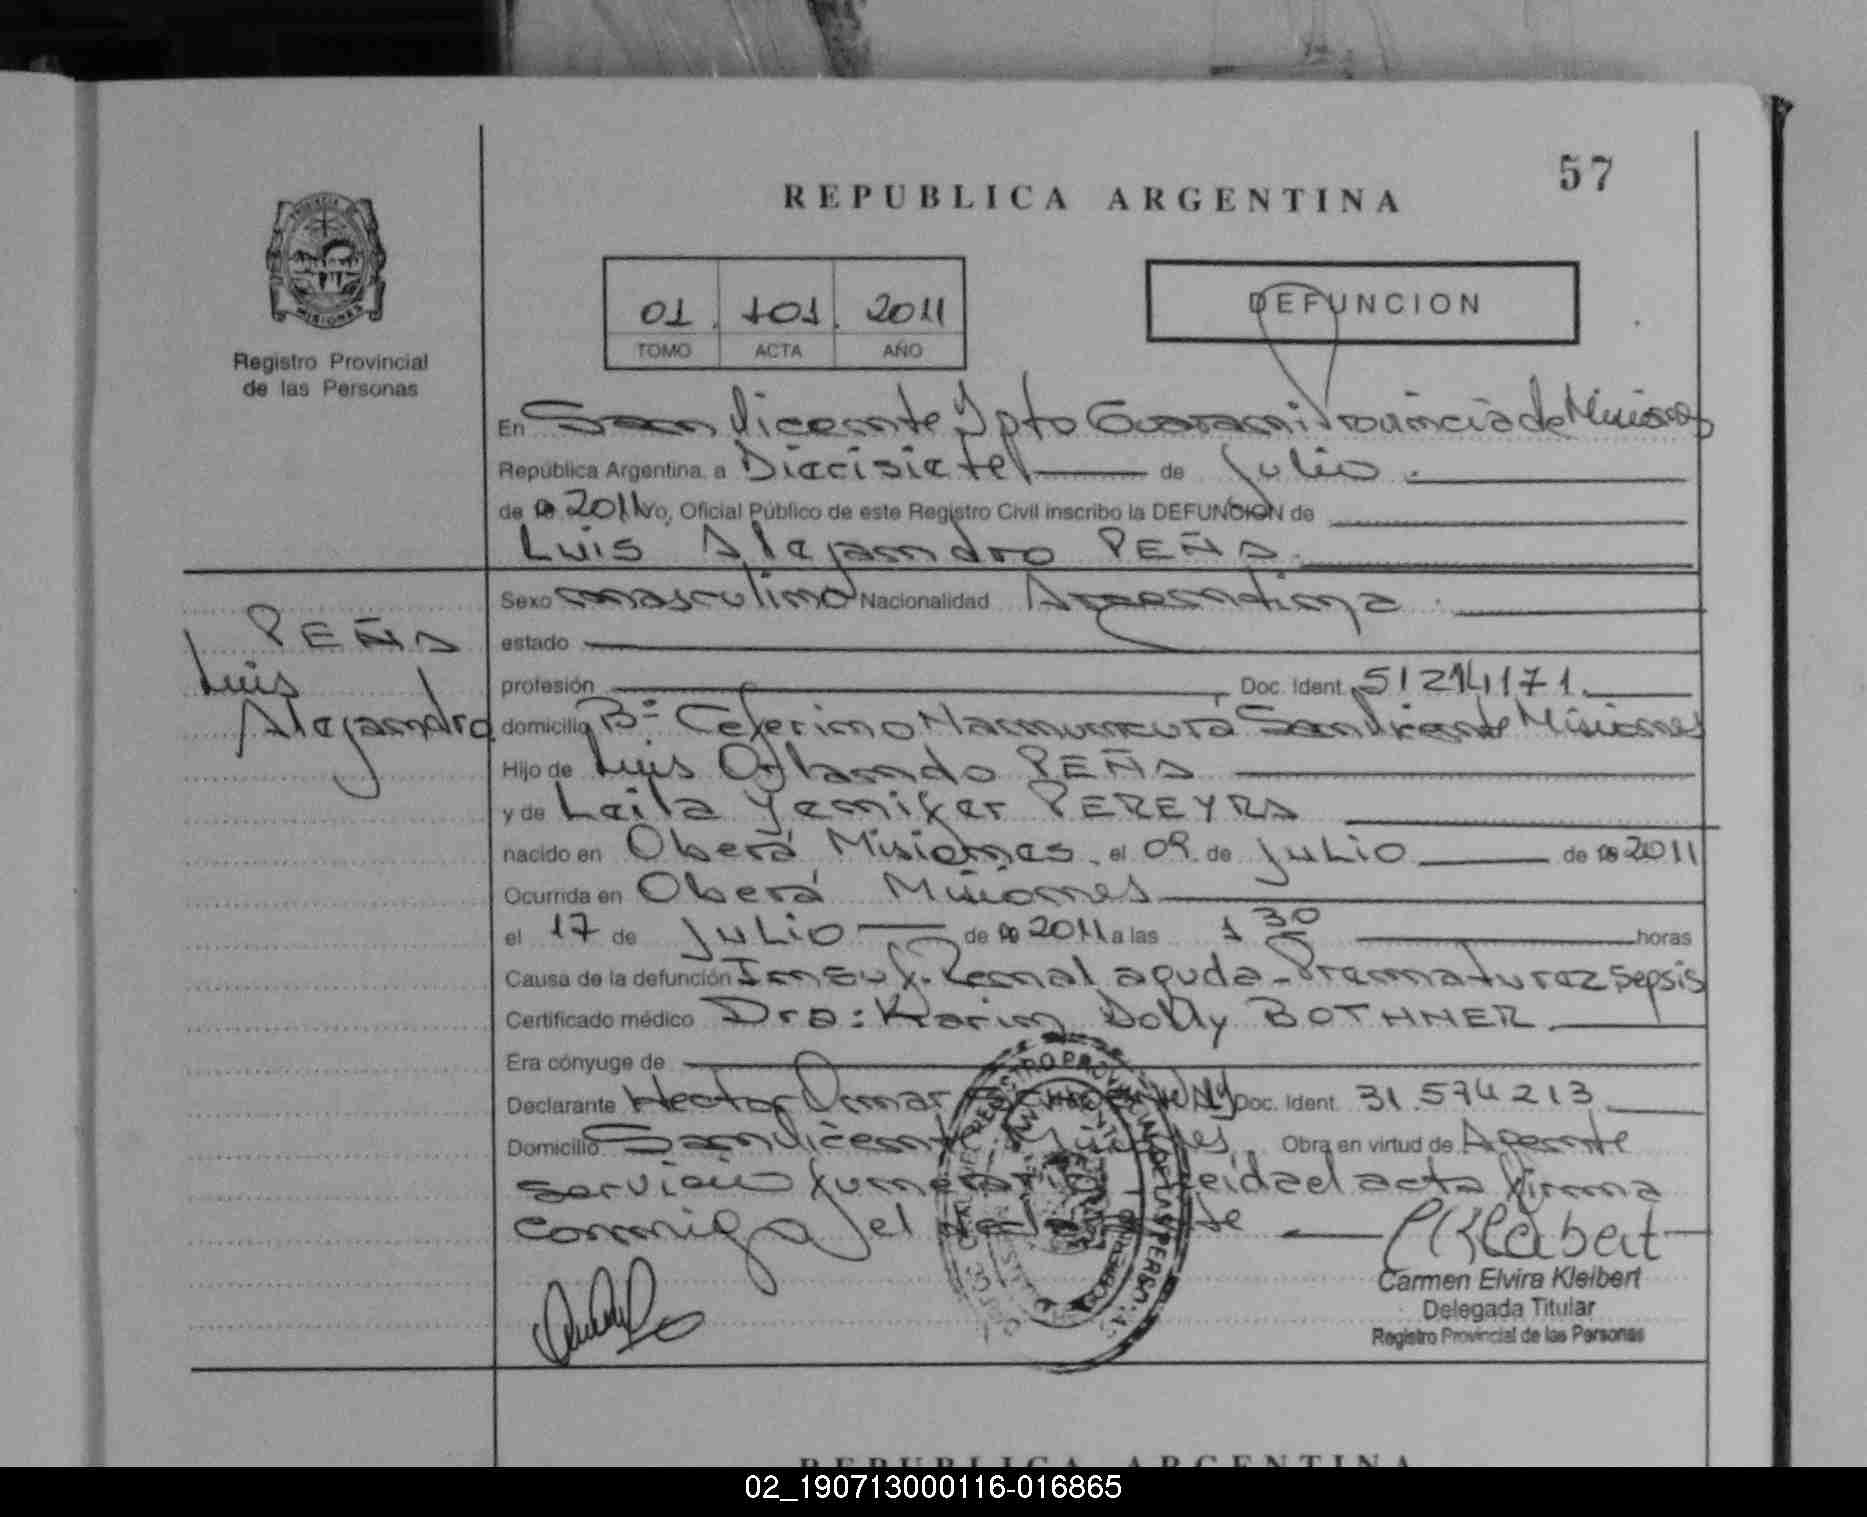 57
REPUBLICA ARGENTINA
01 101 2011
TOMO ACTA AÑO
DEFUNCION
Registro Provincial
de las Personas
En San Vicente Dpto Guarani Provincia de Misiones
República Argentina, a Diecisiete de Julio
de 2011 Yo, Oficial Público de este Registro Civil inscribo la DEFUNCION de
Luis Alejandro PEÑA
PEÑA
Luis
Alejandro
Sexo masculino Nacionalidad Argentina
estado
profesión Doc. Ident. 51214171
domicilio Bº Ceferino Namuncurá San Vicente Misiones
Hijo de Luis Orlando PEÑA
y de Leila Yenifer PEREYRA
nacido en Oberá Misiones el 09 de Julio de 2011
Ocurrida en Oberá Misiones
el 17 de Julio de 2011 a las 1 30 horas
Causa de la defunción Insuf. Renal aguda - Prematurez sepsis
Certificado médico Dra: Karin Dolly BOTHNER
Era cónyuge de
Declarante Hector Omar Doc. Ident. 31.574213
Domicilio San Vicente Misiones Obra en virtud de Agente
servicio funerario leida el acta firma
conmigo el declarante
CKleibert
Carmen Elvira Kleibert
Delegada Titular
Registro Provincial de las Personas
REPUBLICA ARGENTINA
02_190713000116-016865